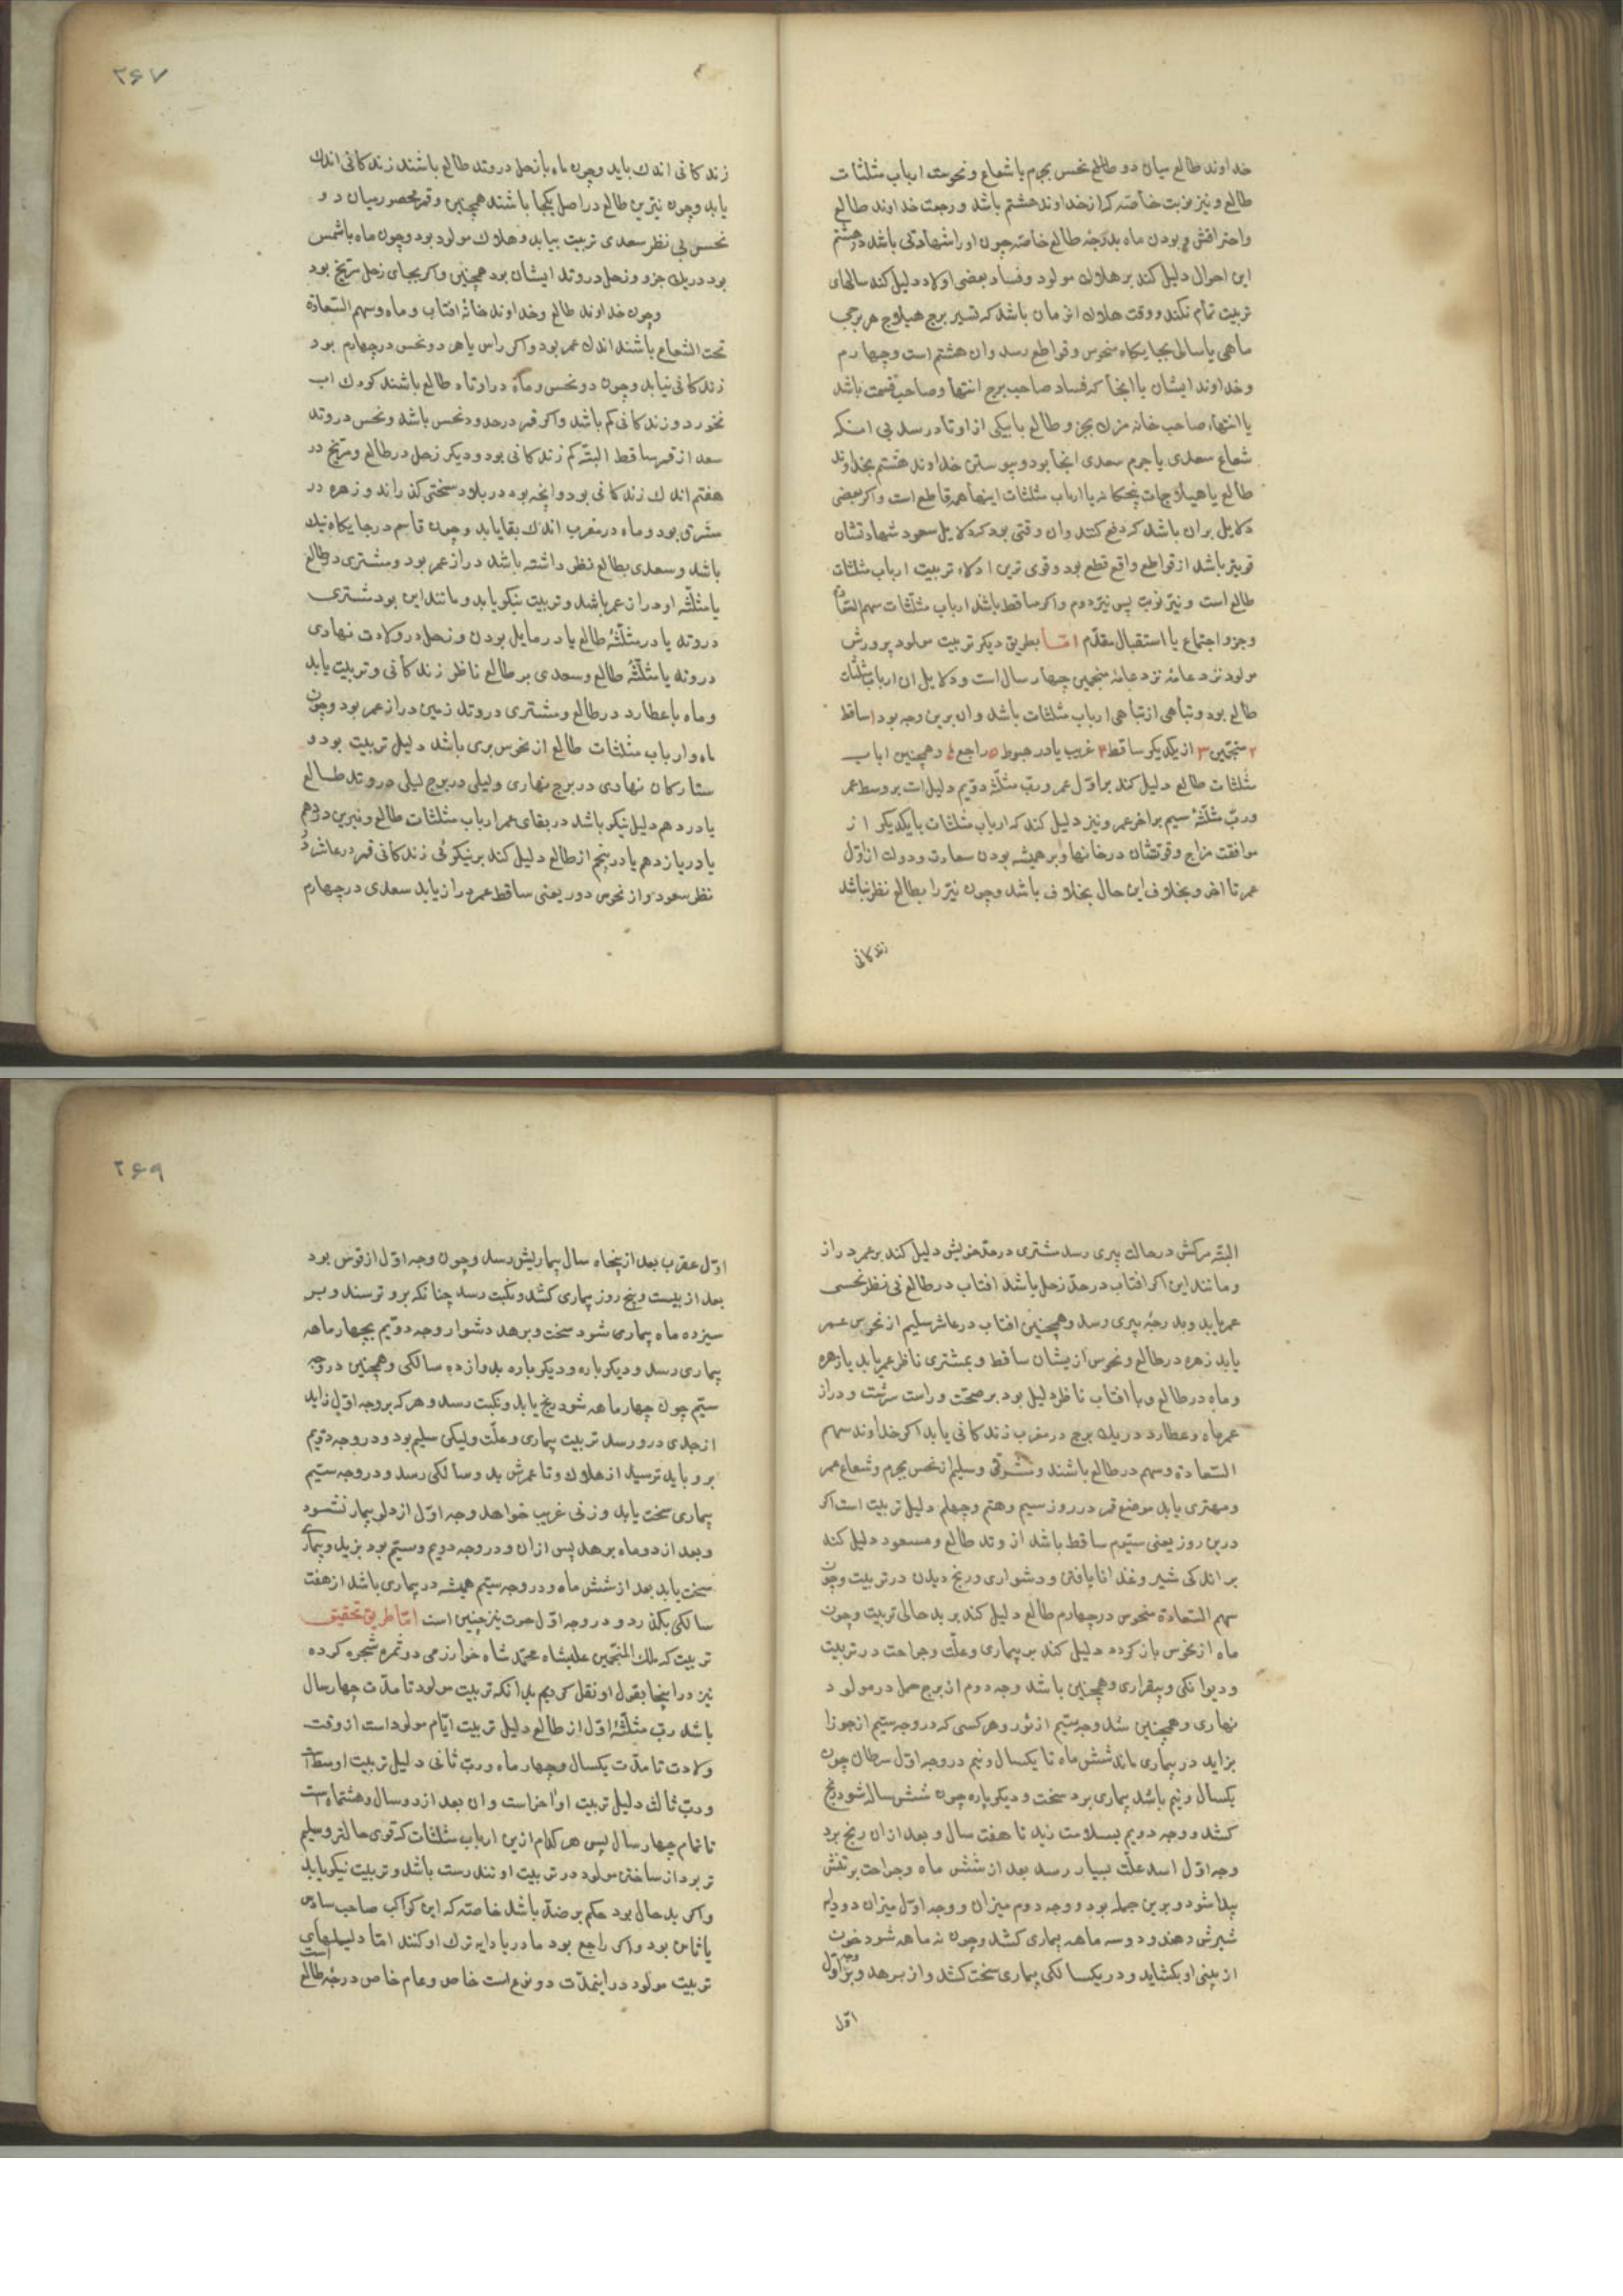 خداوند طالع میان دو طالع نحس بجرم یا شعاع و نحوست ارباب مثلثات
طالع و نیز نوبت خاصه که از خداوند هشتم باشد و رجعت خداوند طالع
و احتراقش و بودن ماه بدرجه طالع خاصه چون او را شهادتی باشد در هشتم
این احوال دلیل کند بر هلاک مولود و فساد بعضی اولاد دلیل کند سالهای
تربیت تمام نکند و وقت هلاک ان زمان باشد که تسیر برج هیلاج هر برجی
ماهی یا سالی بجایکاه منحوس و قواطع رسد وان هشتم است و چهارم
و خداوند ایشان یا انجا که فساد صاحب برج انتها و صاحب قسمت باشد
یا انتهاء صاحب خانه مرک بجزو طالع یا بیکی از اوتاد رسد بی انکه
شعاع سعدی یا جرم سعدی انجا بود و پیوستن خداوند هشتم بخداوند
طالع یا هیلاجات پنجکانه یا ارباب مثلثات اینها همه قاطع است و اکر بعضی
دلایل بران باشد که دفع کنند وان وقتی بود که دلایل سعود شهادتشان
قویتر باشد از قواطع واقع قطع بود و قوی ترین ادلاء تربیت ارباب مثلثات
طالع است و نیز نوبت پس نیز دوم و اکر ساقط باشد ارباب مثلثات سهم السعاده
و جزو اجتماع یا استقبال مقدم اما بطریق دیکر تربیت مولود پرورش
مولود نزد عامه نزد عامه منجمین چهار سال است و دلایل ان ارباب مثلثات
طالع بود و تباهی از تباهی ارباب مثلثات باشد وان برین وجه بود ۱ ساقط
۲ منحتین ۳ از یکدیکر ساقط ۴ غریب یا در هبوط ۵ راجع ۶ و همچنین ارباب
مثلثات طالع دلیل کند بر اول عمر و رب مثلثه دویم دلیل است بر وسط عمر
و رب مثلثه سیم بر اخر عمر و نیز دلیل کند که ارباب مثلثات با یکدیکر از
موافقت مزاج و قوتشان در خانها و بر همیشه بودن سعادت و دولت از اول
عمر تا اخر و بخلاف این حال بخلاف باشد و چون نیز را بطالع نظر نباشد
زندکانی
۲۶۷
زندکانی اندک یابد و چون ماه با زحل در وتد طالع باشند زندکانی اندک
یابد و چون نیرین طالع در اصل یکجا باشند همچنین و قمر محصور میان دو
نحس بی نظر سعدی تربیت بیابد و هلاک مولود بود و چون ماه با شمس
بود در یک جزو و زحل در وتد ایشان بود همچنین و اکر بجای زحل مریخ بود
و چون خداوند طالع و خداوند خانه افتاب و ماه و سهم السعادة
تحت الشعاع باشند اندک عمر بود و اکر راس یا هر دو نحس در چهارم بود
زندکانی نیابد و چون دو نحس و ماه در اوتاد طالع باشند کودک اب
نخورد و زندکانی کم باشد و اکر قمر در حدود نحس باشد و نحس در وتد
سعد از قمر ساقط البته کم زندکانی بود و دیکر زحل در طالع و مریخ در
هفتم اندک زندکانی بود و انچه بود در بلا و سختی کذراند و زهره در
مشرق بود و ماه در مغرب اندک بقا یابد و چون قاسم در جایکاه نیک
باشد و سعدی بطالع نظر داشته باشد دراز عمر بود و مشتری در طالع
یا مثلثه او دراز عمر باشد و تربیت نیکو یابد و مانند این بود مشتری
در وتد یا در مثلثه طالع یا در مایل بودن و زحل در ولادت نهاری
در وتد یا مثلثه طالع و سعدی بر طالع ناظر زندکانی و تربیت یابد
و ماه با عطارد در طالع و مشتری در وتد زمین دراز عمر بود و چون
ماه و ارباب مثلثات طالع از نحوس بری باشد دلیل تربیت بود و
ستارکان نهاری در برج نهاری و لیلی در برج لیلی در وتد طالع
یا در دهم دلیل نیکو باشد در بقای عمر ارباب مثلثات طالع و نیرین در دهم
یا در یازدهم یا در پنجم از طالع دلیل کند بر نیکوئی زندکانی قمر در عاشر در
نظر سعود و از نحوس دور یعنی ساقط عمر دراز یابد سعدی در چهارم
البته مرکش در حالت پیری رسد مشتری در حد خویش دلیل کند بر عمر دراز
و مانند این اکر افتاب در حد زحل باشد افتاب در طالع بی نظر نحسی
عمر یابد و بدرجه پیری رسد و همچنین افتاب در عاشر سلیم از نحوس عمر
یابد زهره در طالع و نحوس از یشان ساقط و بمشتری ناظر عمر یابد یا زهره
و ماه در طالع و با افتاب ناظر دلیل بود بر صحت و راست سرشت و دراز
عمر ماه و عطارد در یک برج در مغرب زندکانی یابد اکر خداوند سهم
السعادة و سهم در طالع باشند و مشرقی و سلیم از نحس بجرم و شعاع عمر
و مهتری یابد موضع قمر در روز سیم و هفتم و چهلم دلیل تربیت است اکر
درین روز یعنی سیوم ساقط باشد از وتد طالع و مسعود دلیل کند
بر اندکی شیر و غذا نایافتن و دشواری و رنج دیدن در تربیت و چون
سهم السعادة منحوس در چهارم طالع دلیل کند بر بد حالی تربیت و چون
ماه از نحوس باز کردد دلیل کند بر بیماری و علت و جراحت در تربیت
و دیوانکی و بیقراری و همچنین باشد وجه دوم از برج حمل در مولود
نهاری و همچنین شد وجه سیم از ثور و هر کسی که در وجه سیم از جوزا
بزاید در بیماری ماند شش ماه تا یکسال و نیم در وجه اول سرطان چون
یکسال و نیم باشد بیماری برد سخت و دیکر باره چون شش ساله شود رنج
کشد و وجه دویم بسلامت زید تا هفت سال و بعد ازان رنج برد
وجه اول اسد علت بسیار رسد بعد از شش ماه و جراحت بر تنش
پیدا شود و برین جمله بود و وجه دوم میزان و وجه اول میزان دو دایه
شیرش دهند و دو سه ماهه بیماری کشد و چون نه ماهه شود خون
از بینی او بکشاید و در یکسالکی بیماری سخت کشد و از برهد و بر وجه اول
اول
۲۶۹
اول عقرب بعد از پنجاه سال بیماریش رسد و چون وجه اول از قوس بود
بعد از بیست و پنج روز بیماری کشد و نکبت رسد چنانکه برو ترسند و بر
سیزده ماه بیماری شود سخت و برهد دشوار وجه دویم بچهار ماهه
بیماری رسد و دیکر باره و دیکر باره بدوازده سالکی و همچنین در وجه
سیم چون چهار ماهه شود رنج یابد و نکبت رسد و هر که بر وجه اول زاید
از جدی درو رسد تربیت بیماری و علت ولیکن سلیم بود و در وجه دویم
برو باید ترسید از هلاک و تا عمرش بدو سالکی رسد و در وجه سیم
بیماری سخت یابد و زنی غریب خواهد وجه اول از دلو بیمار نشود
و بعد از دو ماه برهد پس ازان و در وجه دویم و سیم بود بزید و بیماری
سخت یابد بعد از شش ماه و در وجه سیم همیشه در بیماری باشد از هفت
سالکی بکذرد و در وجه اول حوت نیز چنین است اما طریق تحقیق
تربیت که ملک المنجمین علیشاه محمد شاه خوارزمی در ثمره شجره کرده
نیز در اینجا بقول او نقل کردیم بدانکه تربیت مولود تا مدت چهار سال
باشد رب مثلثه اول از طالع دلیل تربیت ایام مولود است از وقت
ولادت تا مدت یکسال و چهار ماه و رب ثانی دلیل تربیت اوسط
و رب ثالث دلیل تربیت اواخر است وان بعد از دو سال و هشتماه است
تا تمام چهار سال پس هر کدام ازین ارباب مثلثات که قوی حالتر و سلیم
تر بود از ساختن مولود در تربیت او تندرست باشد و تربیت نیکو یابد
و اکر بد حال بود حکم بر ضد باشد خاصه که این کواکب صاحب سادس
یا ثامن بود و اکر راجع بود مادر یا دایه ترک او کنند اما دلیلهای
تربیت مولود در اینمدت دو نوع است خاص و عام خاص درجه طالع است